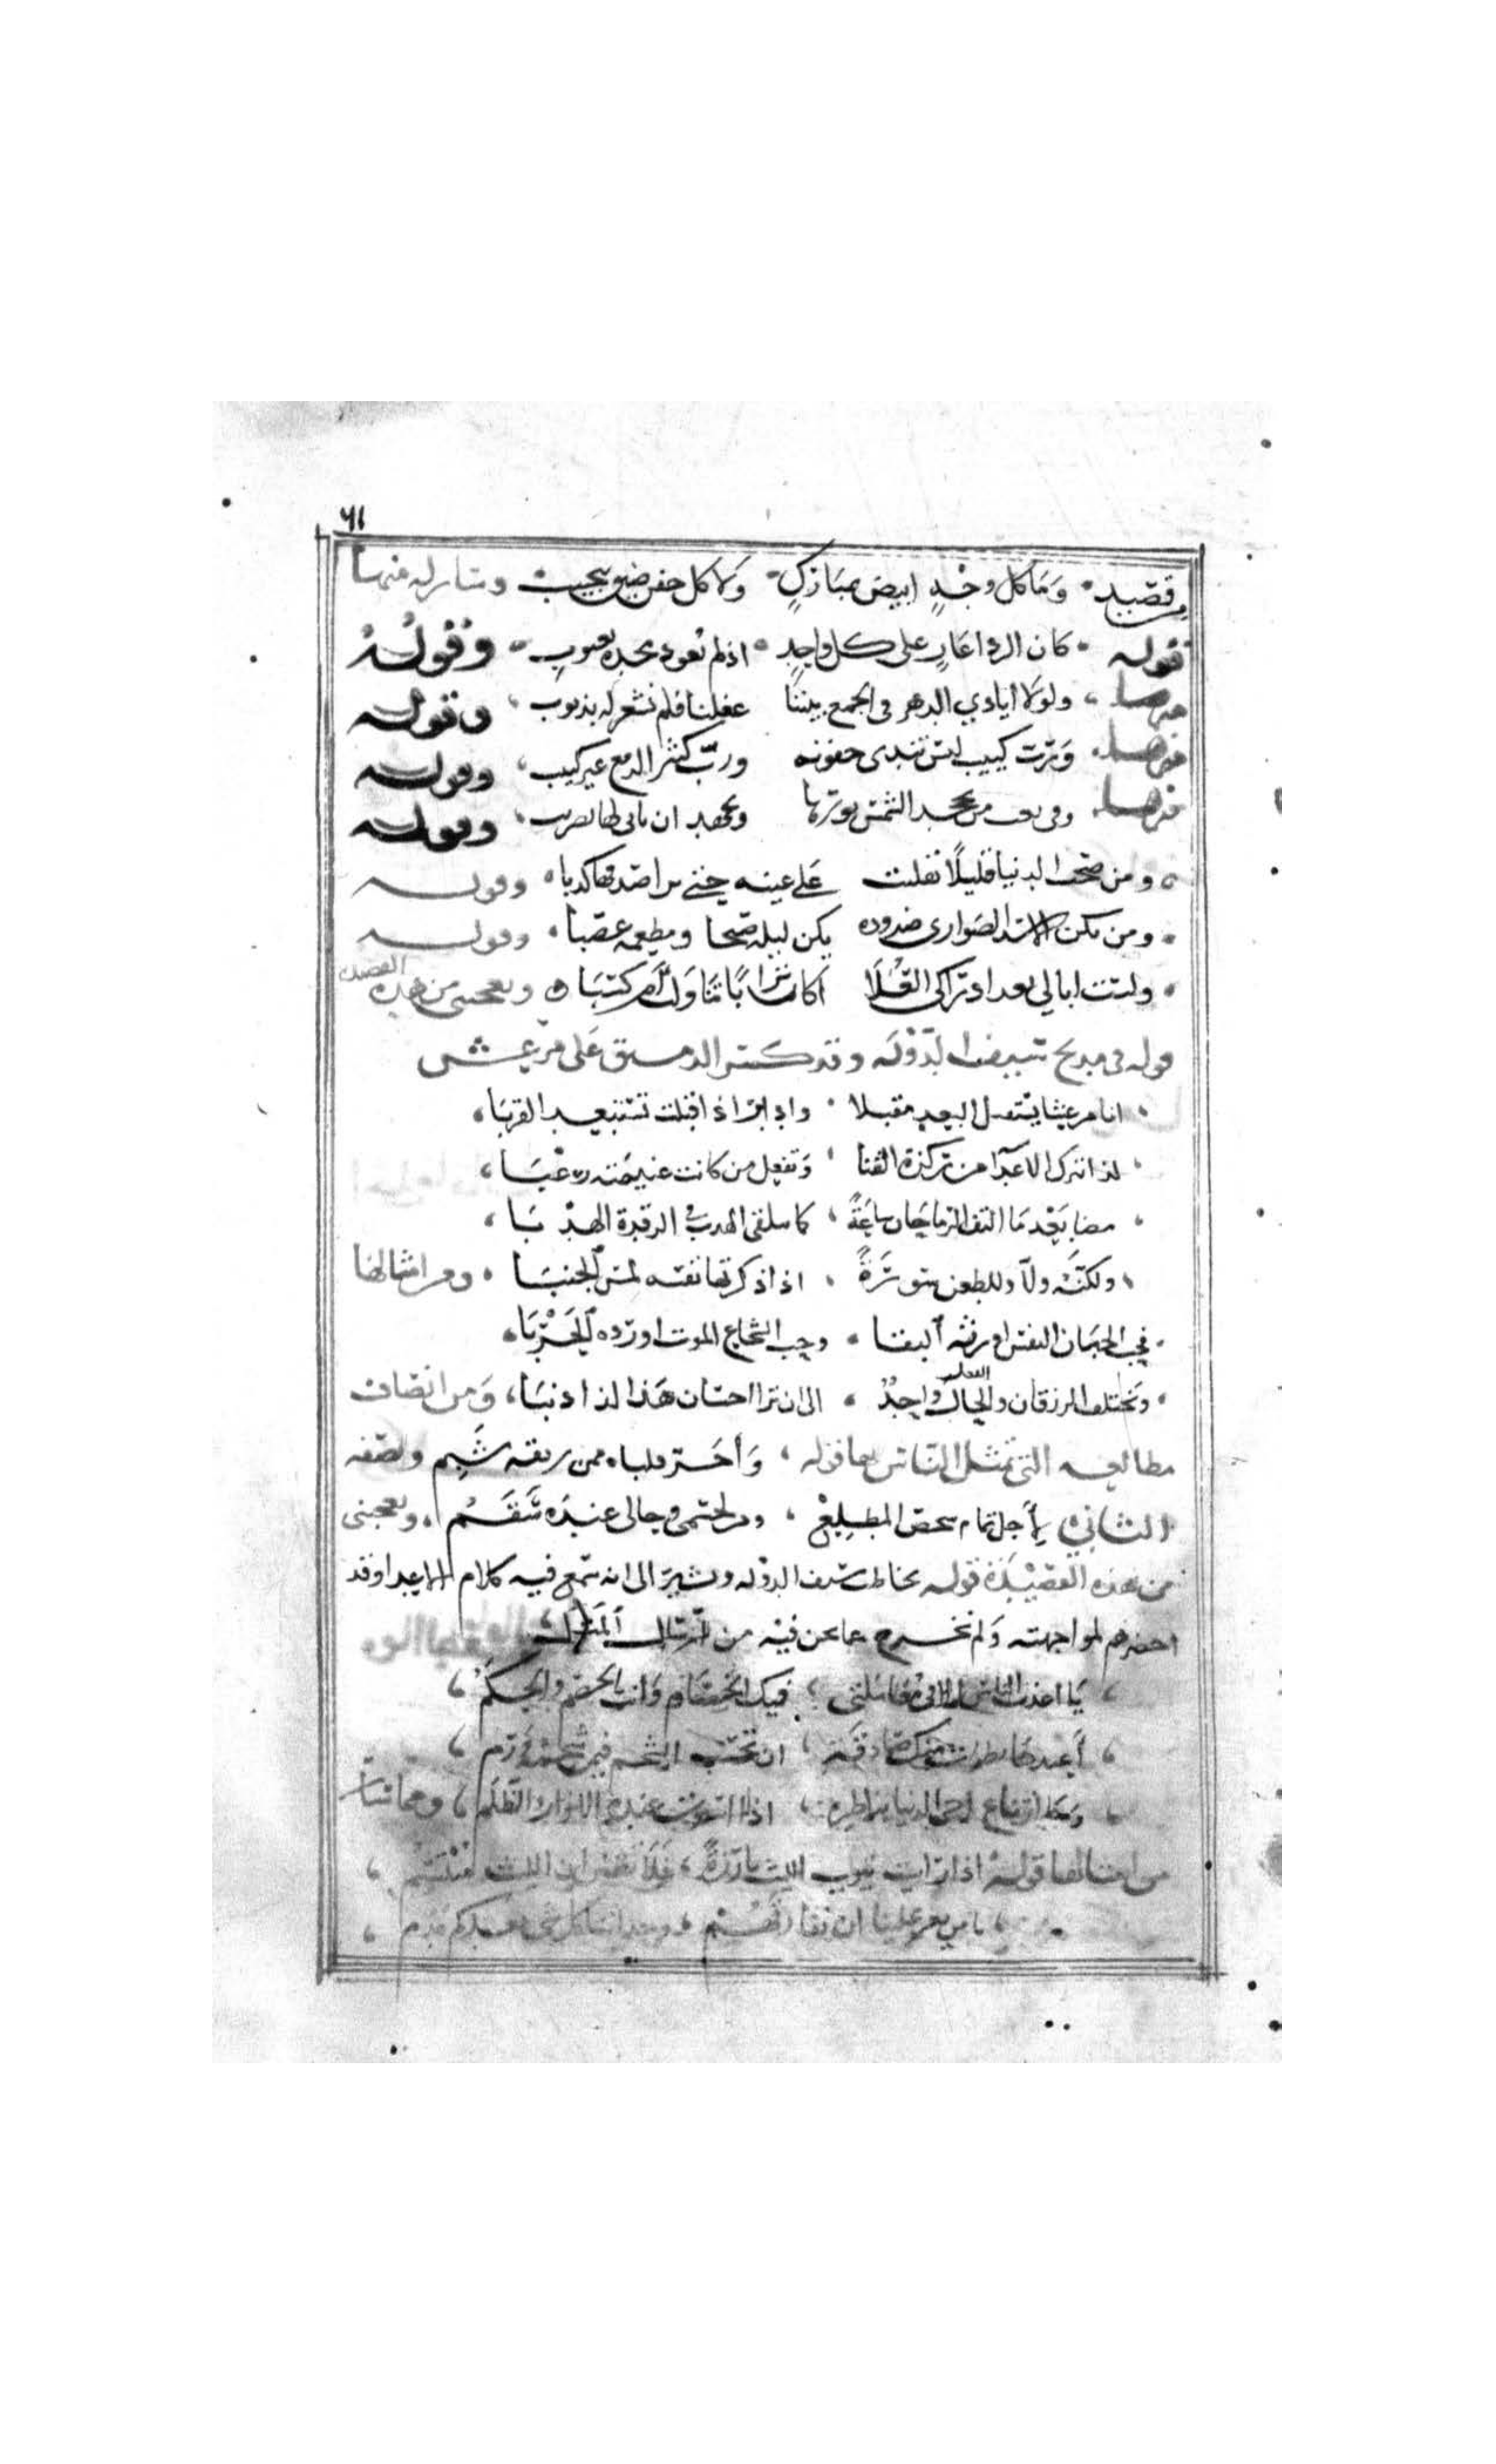 ٦١
من قصيد وَمَا كل وجْهٍ ابيض بمبَارَكٍ وَلا كل جفن ضيق بنجيب وسار له منها
قوله كان الردا عَادٍ على كل ماجدٍ اذا لم يُعوذ مجده بعيوبٍ وَقولُهُ
منها ولولا ايادي الدهر في الجمع بيننا غفلنا فلم نشعر له بذنوب وقوله
منها وَرُبّ كييب ليس تندى جفونه وربّ كثير الدمع غير كييب وقوله
منها وفي تعب من يحسد الشمس نورها ويجهد ان ياتي لها بضريب وقوله
ومن صحب الدنيا قليلًا تقلبت عَلى عينه حتى يرا صدقها كذبا وقوله
ومن تكن الاسد الضواري جدوده يكن ليله صبحا ومطعمه غصبا وقوله
ولست ابالي بعد ادراكي العُلَا اكان تراثًا مَا تناولت أَم كسْبَا ويعجبني من هذه القصيده
قوله في مديح سيف الدَّوْلَه وقد كسر الدمستق عَلى مرعش
اتا مرعشا يستقرب البعيد مقبلا وادبر اذ اقبلت تستبعد القربَا
كذا يترك الاعدا من يكره القنا وَيقفل من كانت غنيمته رعْبَا
مضا بَعْد مَا التف الرماحَان سَاعَةً كما يتلقى الهدب في الرقدة الهدْبَا
ولكنّه ولّا وللطعن سَورَةً اذا ذكرتها نفسه لمس الجنبَا ومن امثالها
فحب الجبَان النفس اورثه البقا وحب الشجاع الموت اورده الحَرْبَا
وَيختلف الرزقان والفعل واحِدٌ الى ان ترا احسان هَذا لذا ذنبَا، وَمن انصاف
مطالعه التي تمثل النَّاس بها قوله وَأحَر قلباه ممن قلبه شَبِم ونصفه
الثاني لأجل تمام محض المطلِعْ ومن بجسمي وحالي عنده سَقَمُ ويعجبني
من هذه القصِيْدَة قوله يخاطب سيف الدوله ويشير الى انه سَمع فيه كلام الاعدا وقد
احضرهم لمواجهته وَلم نخرج عما نحن فيْه من ارسَال المَثَل
يَا اعدل الناس الا في معَاملتي فيك الخصَام وَانت الخصم والحَكَمُ
أُعيذهَا نظرات منك صَادقَة ان تحسب الشحم فيمن شحمه وَرَم
وَمَا انتفاع اخي الدنيا بناظره اذا استوت عنده الانوار والظلَمُ ومما سار
من امثالها قولهُ اذا رَايت نيوب الليث بَارزةً فلَا تظنن ان الليث مُبْتَسِمُ
يا من يعز علينا ان نفارقَهُمْ وجداننا كل شي بعدكم عَدَم